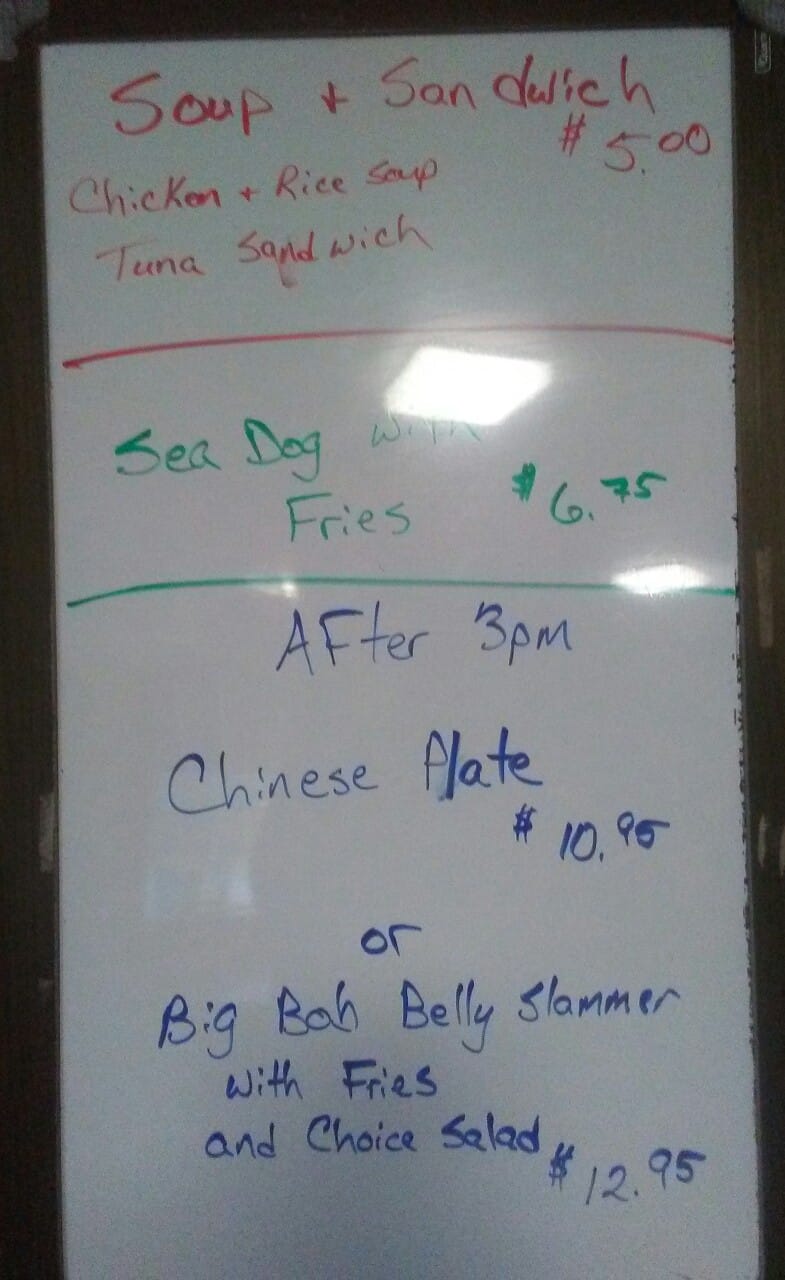 Soup + Sandwich
$5.00
Chicken + Rice Soup
Tuna Sandwich
Sea Dog with
Fries $6.75
AFter 3pm
Chinese Plate
$10.95
or
Big Bob Belly Slammer
with Fries
and Choice Salad
$12.95